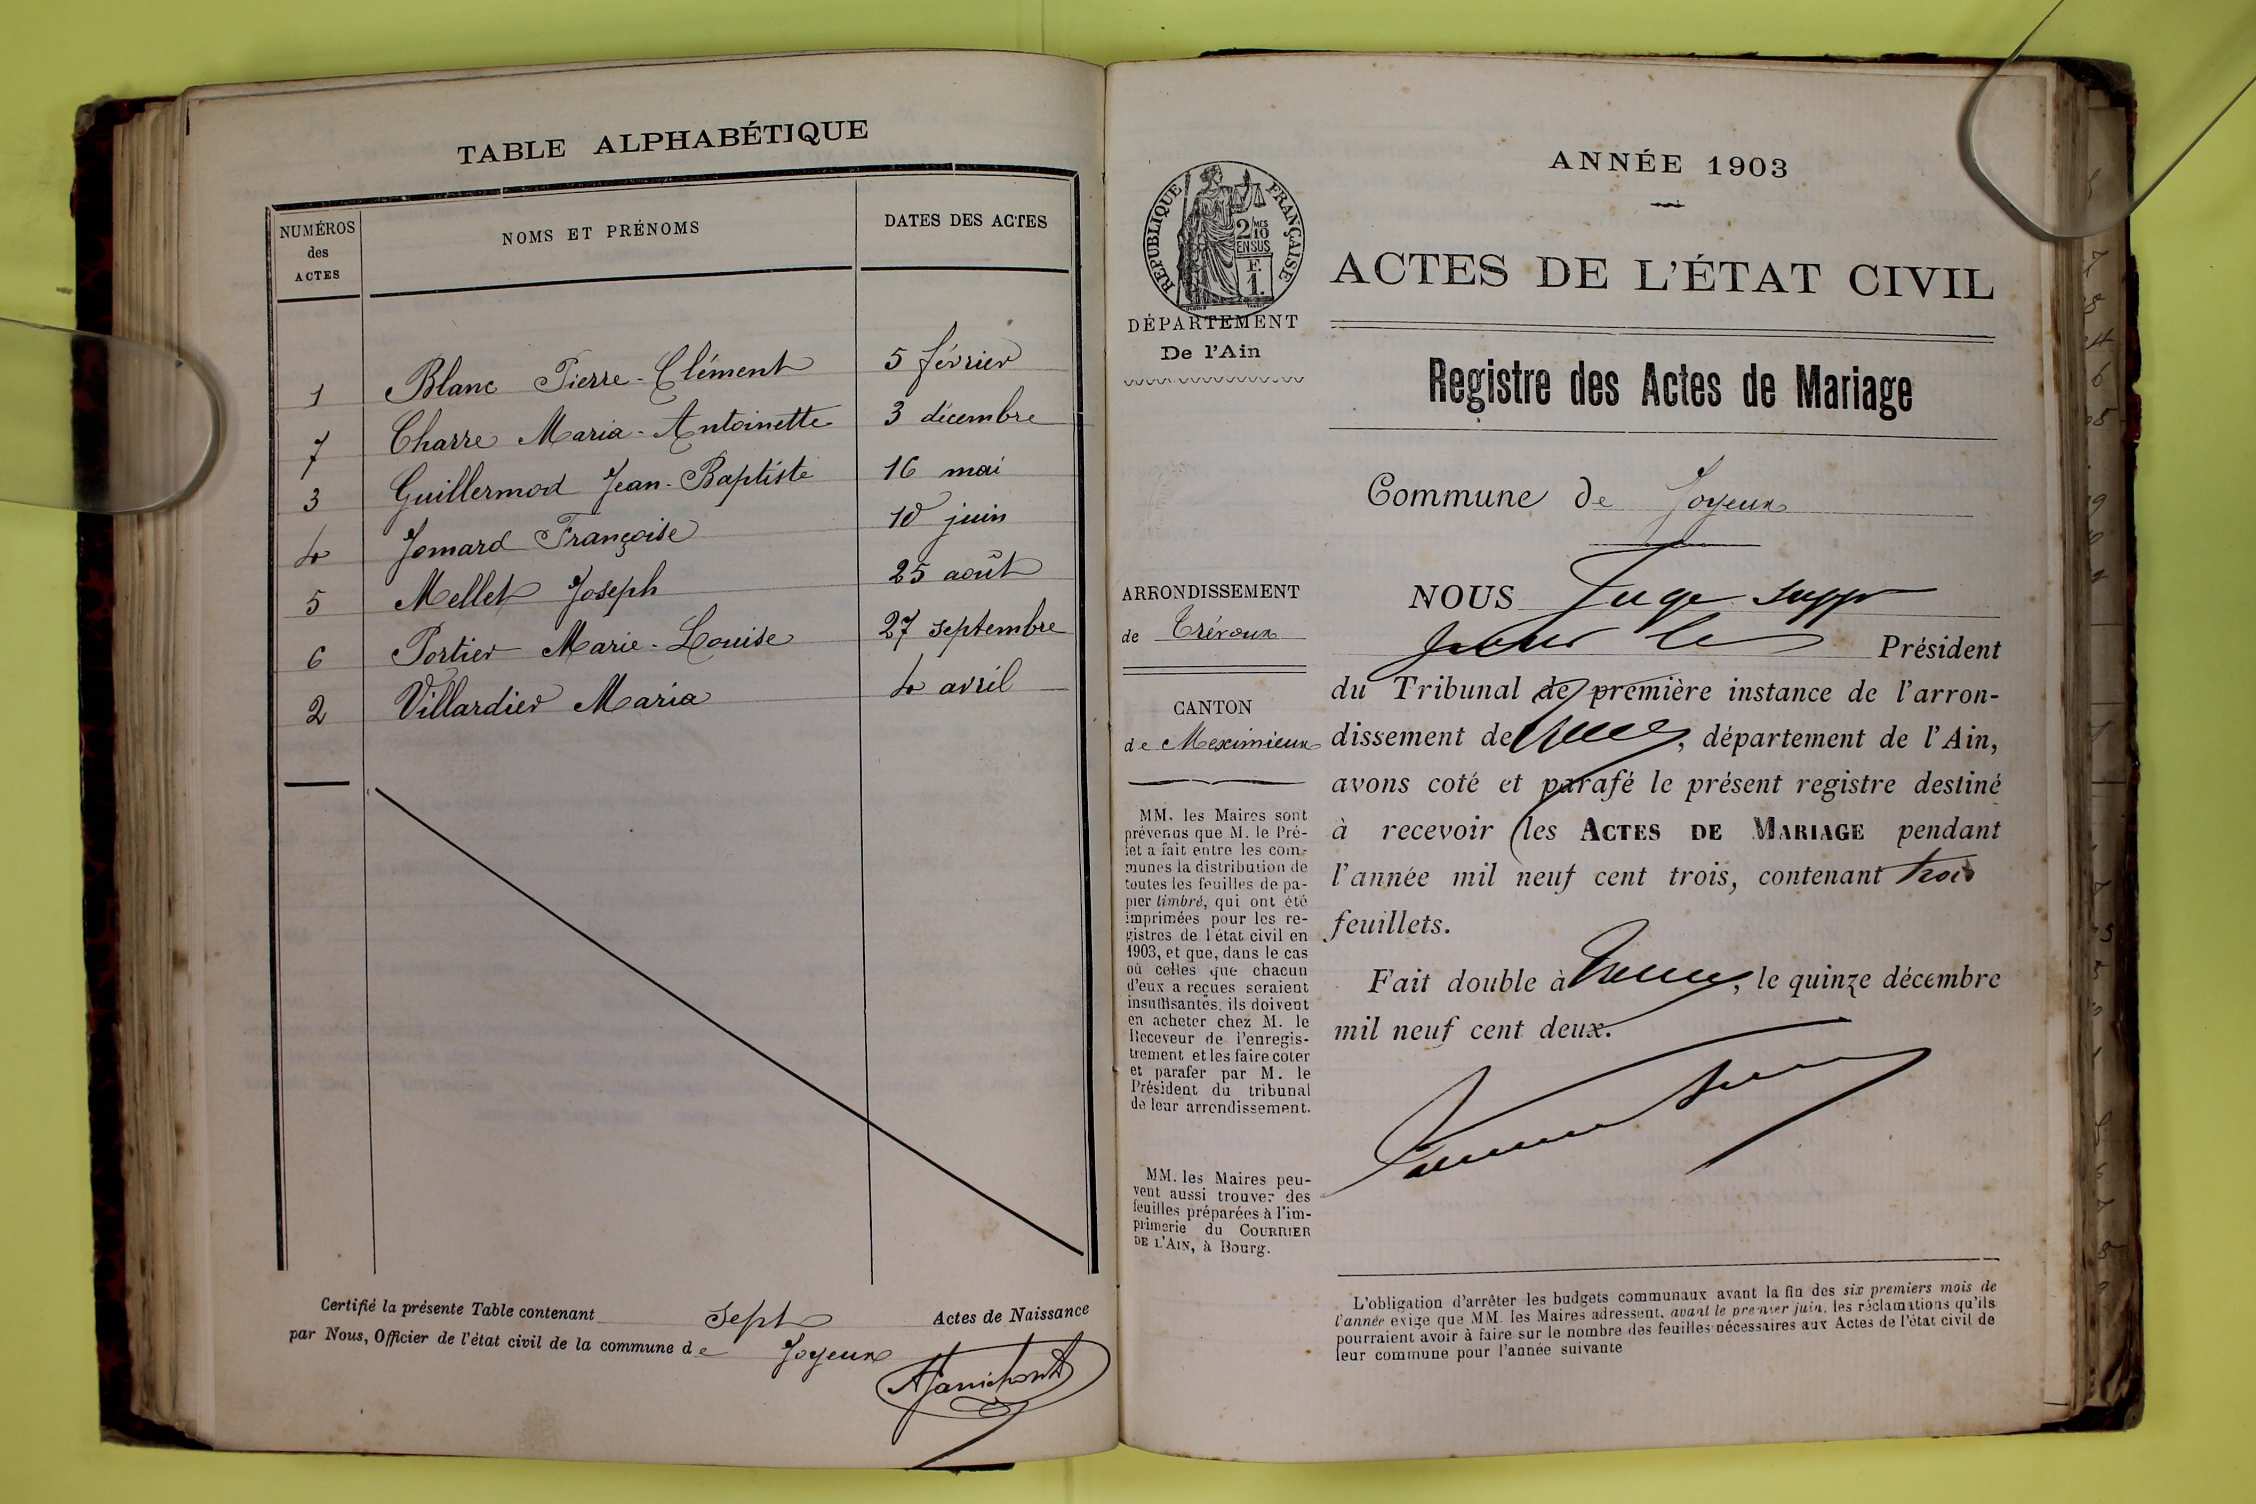 TABLE ALPHABÉTIQUE
NUMÉROS
des
ACTES
NOMS ET PRÉNOMS
DATES DES ACTES
1 Blanc Pierre-Clément 5 février
7 Charre Maria-Antoinette 3 décembre
3 Guillermod Jean-Baptiste 16 mai
4 Jomard Françoise 10 juin
5 Mellet Joseph 25 août
6 Portier Marie-Louise 27 septembre
2 Villardier Maria 4 avril
Certifié la présente Table contenant sept Actes de Naissance
par Nous, Officier de l'état civil de la commune de Joyeux
ANNÉE 1903
RÉPUBLIQUE FRANÇAISE
2 MES
10
EN SUS
F.
1.
DÉPARTEMENT
De l'Ain
ARRONDISSEMENT
de Trévoux
CANTON
de Meximieux
MM. les Maires sont
prévenus que M. le Pré-
fet a fait entre les com-
munes la distribution de
toutes les feuilles de pa-
pier timbré, qui ont été
imprimées pour les re-
gistres de l'état civil en
1903, et que, dans le cas
où celles que chacun
d'eux a reçues seraient
insuffisantes, ils doivent
en acheter chez M. le
Receveur de l'enregis-
trement et les faire coter
et parafer par M. le
Président du tribunal
de leur arrondissement.
MM. les Maires peu-
vent aussi trouver des
feuilles préparées à l'im-
primerie du COURRIER
DE L'AIN, à Bourg.
ACTES DE L'ÉTAT CIVIL
Registre des Actes de Mariage
Commune de Joyeux
NOUS Juge supp
pour le Président
du Tribunal de première instance de l'arron-
dissement de , département de l'Ain,
avons coté et parafé le présent registre destiné
à recevoir les ACTES DE MARIAGE pendant
l'année mil neuf cent trois, contenant trois
feuillets.
Fait double à , le quinze décembre
mil neuf cent deux.
L'obligation d'arrêter les budgets communaux avant la fin des six premiers mois de
l'année exige que MM. les Maires adressent, avant le premier juin, les réclamations qu'ils
pourraient avoir à faire sur le nombre des feuilles nécessaires aux Actes de l'état civil de
leur commune pour l'année suivante